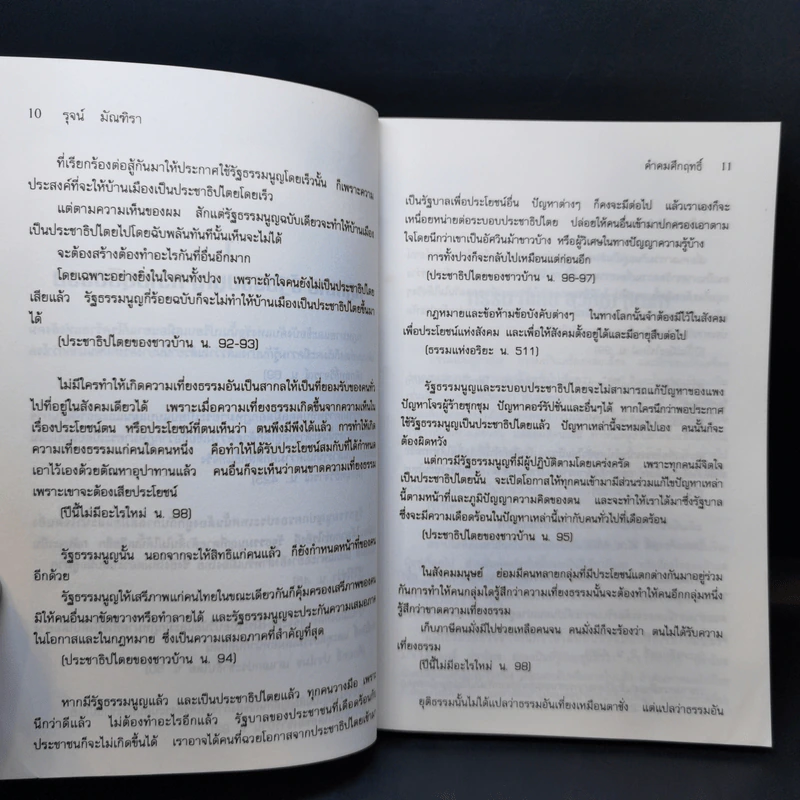 10 รุจน์ มัณฑิรา
ที่เรียกร้องต่อสู้กันมาให้ประกาศใช้รัฐธรรมนูญโดยเร็วนั้น ก็เพราะความ
ประสงค์ที่จะให้บ้านเมืองเป็นประชาธิปไตยโดยเร็ว
แต่ตามความเห็นของผม สักแต่รัฐธรรมนูญฉบับเดียวจะทำให้บ้านเมือง
เป็นประชาธิปไตยไปโดยฉับพลันทันทีนั้นเห็นจะไม่ได้
จะต้องสร้างต้องทำอะไรกันที่อื่นอีกมาก
โดยเฉพาะอย่างยิ่งในใจคนทั้งปวง เพราะถ้าใจคนยังไม่เป็นประชาธิปไตย
เสียแล้ว รัฐธรรมนูญกี่ร้อยฉบับก็จะไม่ทำให้บ้านเมืองเป็นประชาธิปไตยขึ้นมา
ได้
(ประชาธิปไตยของชาวบ้าน น. 92-93)
ไม่มีใครทำให้เกิดความเที่ยงธรรมอันเป็นสากลให้เป็นที่ยอมรับของคนทั่ว
ไปที่อยู่ในสังคมเดียวได้ เพราะเมื่อความเที่ยงธรรมเกิดขึ้นจากความเห็นใน
เรื่องประโยชน์ตน หรือประโยชน์ที่ตนเห็นว่า ตนพึงมีพึงได้แล้ว การทำให้เกิด
ความเที่ยงธรรมแก่คนใดคนหนึ่ง คือทำให้ได้รับประโยชน์สมกับที่ได้กำหนด
เอาไว้เองด้วยตัณหาอุปาทานแล้ว คนอื่นก็จะเห็นว่าตนขาดความเที่ยงธรรม
เพราะเขาจะต้องเสียประโยชน์
(ปีนี้ไม่มีอะไรใหม่ น. 98)
รัฐธรรมนูญนั้น นอกจากจะให้สิทธิแก่คนแล้ว ก็ยังกำหนดหน้าที่ของคน
อีกด้วย
รัฐธรรมนูญให้เสรีภาพแก่คนไทยในขณะเดียวกันก็คุ้มครองเสรีภาพของคน
มิให้คนอื่นมาขัดขวางหรือทำลายได้ และรัฐธรรมนูญจะประกันความเสมอภาค
ในโอกาสและในกฎหมาย ซึ่งเป็นความเสมอภาคที่สำคัญที่สุด
(ประชาธิปไตยของชาวบ้าน น. 94)
หากมีรัฐธรรมนูญแล้ว และเป็นประชาธิปไตยแล้ว ทุกคนวางมือ เพราะ
นึกว่าดีแล้ว ไม่ต้องทำอะไรอีกแล้ว รัฐบาลของประชาชนที่เดือดร้อนกับ
ประชาชนก็จะไม่เกิดขึ้นได้ เราอาจได้คนที่ฉวยโอกาสจากประชาธิปไตยเข้ามา
คำคมศึกฤทธิ์ 11
เป็นรัฐบาลเพื่อประโยชน์อื่น ปัญหาต่างๆ ก็คงจะมีต่อไป แล้วเราเองก็จะ
เหนื่อยหน่ายต่อระบอบประชาธิปไตย ปล่อยให้คนอื่นเข้ามาปกครองเอาตาม
ใจโดยนึกว่าเขาเป็นอัศวินม้าขาวบ้าง หรือผู้วิเศษในทางปัญญาความรู้บ้าง
การทั้งปวงก็จะกลับไปเหมือนแต่ก่อนอีก
(ประชาธิปไตยของชาวบ้าน น. 96-97)
กฎหมายและข้อห้ามข้อบังคับต่างๆ ในทางโลกนั้นจำต้องมีไว้ในสังคม
เพื่อประโยชน์แห่งสังคม และเพื่อให้สังคมตั้งอยู่ได้และมีอายุสืบต่อไป
(ธรรมแห่งอริยะ น. 511)
รัฐธรรมนูญและระบอบประชาธิปไตยจะไม่สามารถแก้ปัญหาของแพง
ปัญหาโจรผู้ร้ายชุกชุม ปัญหาคอร์รัปชั่นและอื่นๆได้ หากใครนึกว่าพอประกาศ
ใช้รัฐธรรมนูญเป็นประชาธิปไตยแล้ว ปัญหาเหล่านี้จะหมดไปเอง คนนั้นก็จะ
ต้องผิดหวัง
แต่การมีรัฐธรรมนูญที่มีผู้ปฏิบัติตามโดยเคร่งครัด เพราะทุกคนมีจิตใจ
เป็นประชาธิปไตยนั้น จะเปิดโอกาสให้ทุกคนเข้ามามีส่วนร่วมแก้ไขปัญหาเหล่า
นี้ตามหน้าที่และภูมิปัญญาความคิดของตน และจะทำให้เราได้มาซึ่งรัฐบาล
ซึ่งจะมีความเดือดร้อนในปัญหาเหล่านี้เท่ากับคนทั่วไปที่เดือดร้อน
(ประชาธิปไตยของชาวบ้าน น. 95)
ในสังคมมนุษย์ ย่อมมีคนหลายกลุ่มที่มีประโยชน์แตกต่างกันมาอยู่ร่วม
กันการทำให้คนกลุ่มใดรู้สึกถึงความเที่ยงธรรมนั้นจะต้องทำให้คนอีกกลุ่มหนึ่ง
รู้สึกว่าขาดความเที่ยงธรรม
เก็บภาษีคนมั่งมีไปช่วยเหลือคนจน คนมั่งมีก็จะร้องว่า ตนไม่ได้รับความ
เที่ยงธรรม
(ปีนี้ไม่มีอะไรใหม่ น. 98)
ยุติธรรมนั้นไม่ได้แปลว่าธรรมอันเที่ยงเหมือนตาชั่ง แต่แปลว่าธรรมอัน